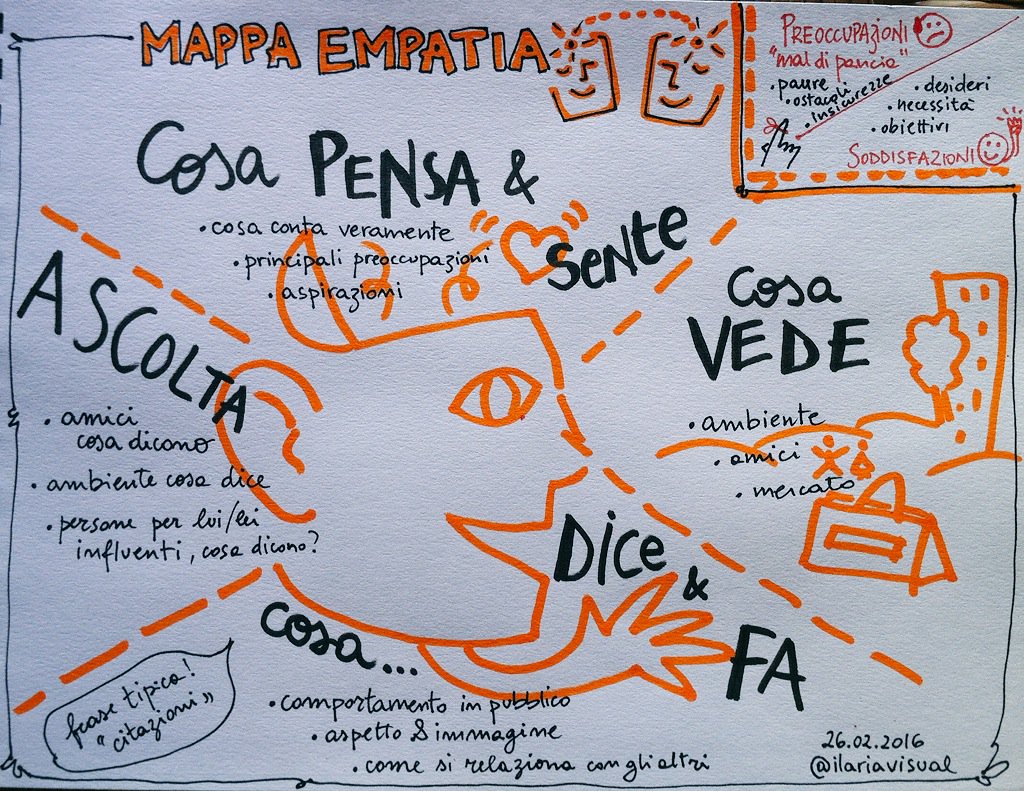 MAPPA EMPATIA
PREOCCUPAZIONI
"mal di pancia"
• paure
• ostacoli
• insicurezze
• desideri
• necessità
• obiettivi
SODDISFAZIONI
Cosa PENSA &
SeNte
• cosa conta veramente
• principali preoccupazioni
• aspirazioni
ASCOLTA
• amici
cosa dicono
• ambiente cosa dice
• persone per lui/lei
influenti, cosa dicono?
Cosa
VEDE
• ambiente
• amici
• mercato
cosa...
DiCe
&
FA
• comportamento in pubblico
• aspetto & immagine
• come si relaziona con gli altri
frase tipica!
"citazioni"
26.02.2016
@ilariavisual